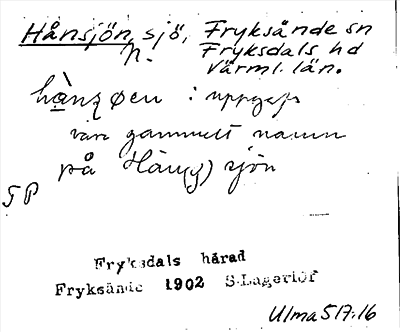 Hånsjön, sjö, Fryksände sn
n. Fryksdals hd
Värml. län.
hànzøen : uppges
vara gammalt namn
på Hån(g)sjön
GP
Fryksdals härad
Fryksände 1902 S.Lagerlöf
Ulma 517:16